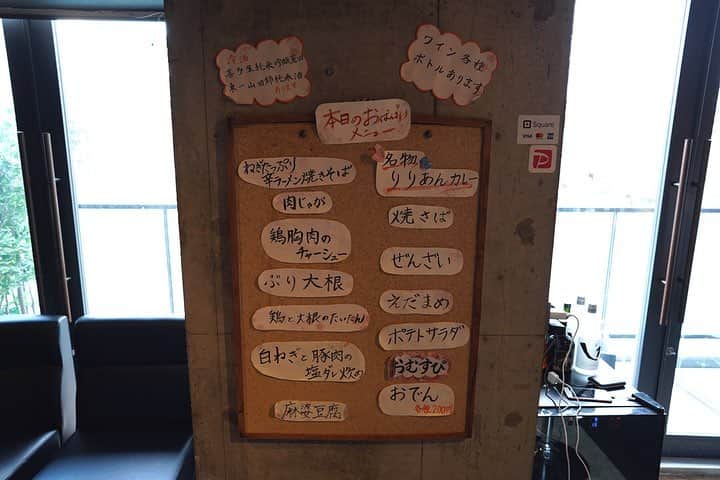 冷酒
喜多屋純米吟醸寛山
東一山田錦純米酒
あります
ワイン各種
ボトルあります
本日のおばんざい
メニュー
ねぎたっぷり
辛ラーメン焼きそば
肉じゃが
鶏胸肉の
チャーシュー
ぶり大根
鶏と大根のたいたん
白ねぎと豚肉の
塩ダレ炒め
麻婆豆腐
名物
りりあんカレー
焼さば
ぜんざい
えだまめ
ポテトサラダ
おむすび
おでん
各種200円
Square
VISA